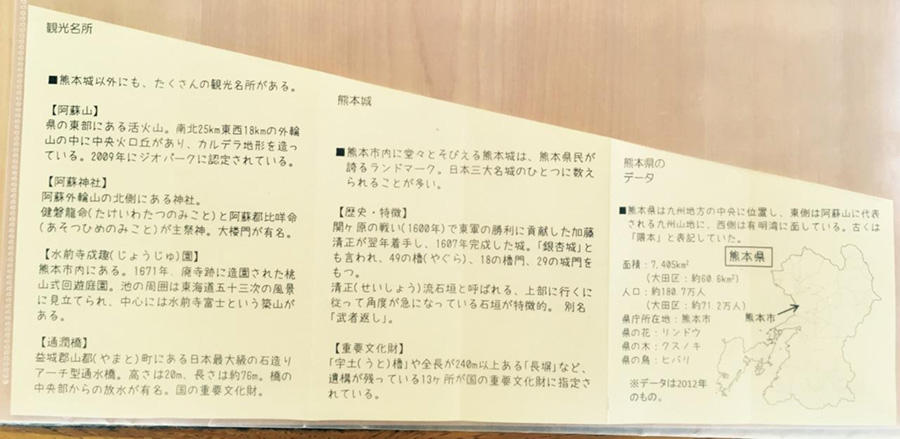 観光名所
■熊本城以外にも、たくさんの観光名所がある。
【阿蘇山】
県の東部にある活火山。南北25km東西18kmの外輪
山の中に中央火口丘があり、カルデラ地形を造っ
ている。2009年にジオパークに認定されている。
【阿蘇神社】
阿蘇外輪山の北側にある神社。
健磐龍命(たけいわたつのみこと)と阿蘇都比咩命
(あそつひめのみこと)が主祭神。大楼門が有名。
【水前寺成趣(じょうじゅ)園】
熊本市内にある。1671年、廃寺跡に造園された桃
山式回遊庭園。池の周囲は東海道五十三次の風景
に見立てられ、中心には水前寺富士という築山が
ある。
【通潤橋】
益城郡山都(やまと)町にある日本最大級の石造り
アーチ型通水橋。高さは20m、長さは約76m。橋の
中央部からの放水が有名。国の重要文化財。
熊本城
■熊本市内に堂々とそびえる熊本城は、熊本県民が
誇るランドマーク。日本三大名城のひとつに数え
られることが多い。
【歴史・特徴】
関ヶ原の戦い(1600年)で東軍の勝利に貢献した加藤
清正が翌年着手し、1607年完成した城。「銀杏城」と
も言われ、49の櫓(やぐら)、18の櫓門、29の城門を
もつ。
清正(せいしょう)流石垣と呼ばれる、上部に行くに
従って角度が急になっている石垣が特徴的。 別名
「武者返し」。
【重要文化財】
「宇土(うと)櫓」や全長が240m以上ある「長塀」など、
遺構が残っている13ヶ所が国の重要文化財に指定さ
れている。
熊本県の
データ
■熊本県は九州地方の中央に位置し、東側は阿蘇山に代表
される九州山地に、西側は有明湾に面している。古くは
「隈本」と表記していた。
熊本県
面積：7,405k㎡
(大田区：約60.6k㎡)
人口：約180.7万人
(大田区：約71.2万人)
県庁所在地：熊本市
県の花：リンドウ
県の木：クスノキ
県の鳥：ヒバリ
熊本市
※データは2012年
のもの。